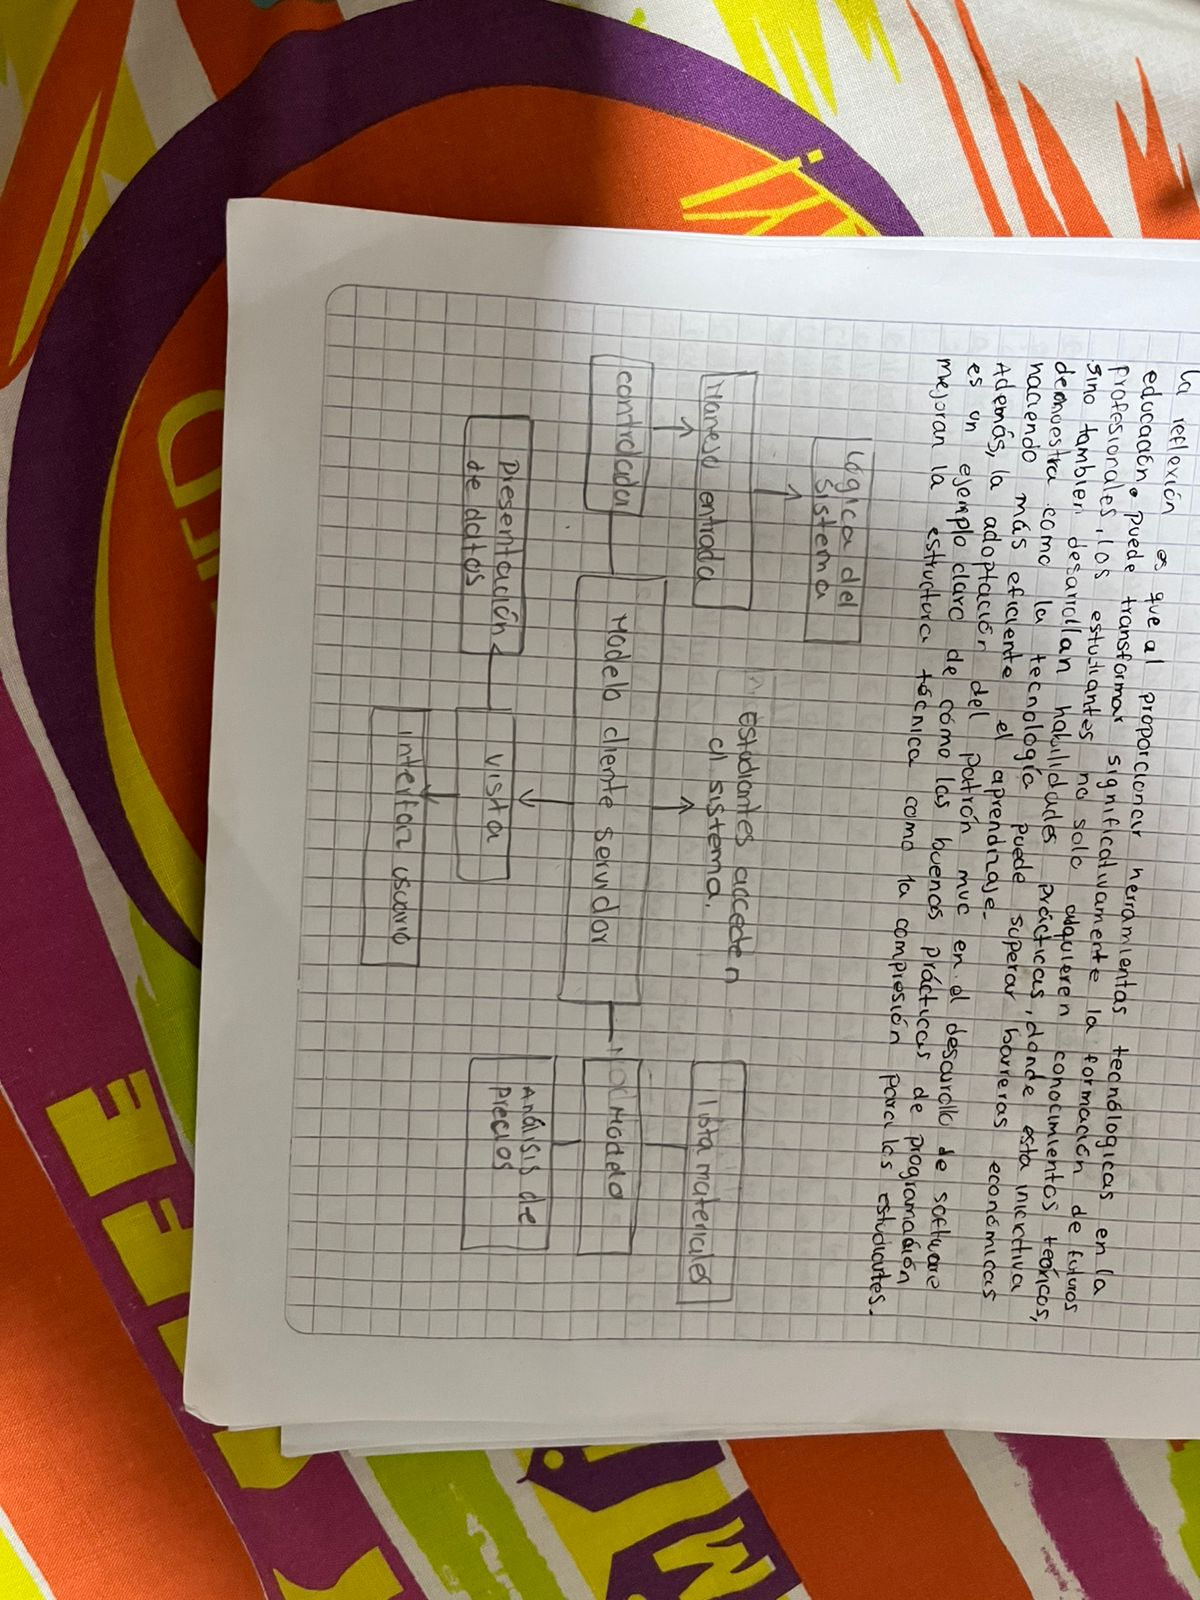 La reflexión es que al proporcionar herramientas tecnólogicas en la
educación puede transformar significativamente la formación de futuros
profesionales, los estudiantes no solo adquieren conocimientos teóricos,
sino tambien desarrollan habilidades prácticas, donde esta iniciativa
demuestra como la tecnología puede superar barreras económicas
haciendo más eficiente el aprendizaje.
Además, la adoptación del patrón mvc en el desarrollo de software
es un ejemplo claro de cómo las buenas prácticas de programación
mejoran la estructura técnica como la compresión para los estudiantes.
Lógica del
Sistema
Manejo entrada
Estudiantes acceden
al sistema.
lista materiales
controlador
Modelo cliente servidor
Modelo
Presentación
de datos
Vista
Análisis de
Precios
interfaz usuario